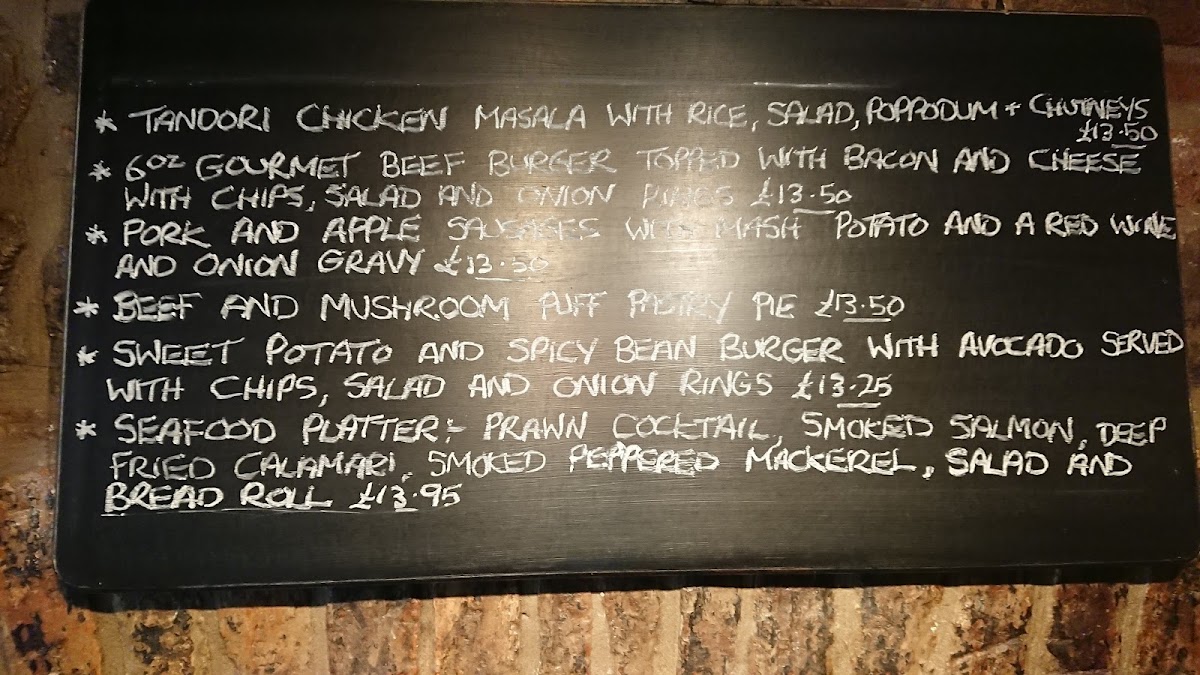 * TANDORI CHICKEN MASALA WITH RICE, SALAD, POPPODUM + CHUTNEYS
£13.50
* 6oz GOURMET BEEF BURGER TOPPED WITH BACON AND CHEESE
WITH CHIPS, SALAD AND ONION RINGS £13.50
* PORK AND APPLE SAUSAGES WITH MASH POTATO AND A RED WINE
AND ONION GRAVY £13.50
* BEEF AND MUSHROOM PUFF PASTRY PIE £13.50
* SWEET POTATO AND SPICY BEAN BURGER WITH AVOCADO SERVED
WITH CHIPS, SALAD AND ONION RINGS £13.25
* SEAFOOD PLATTER:- PRAWN COCKTAIL, SMOKED SALMON, DEEP
FRIED CALAMARI, SMOKED PEPPERED MACKEREL, SALAD AND
BREAD ROLL £13.95